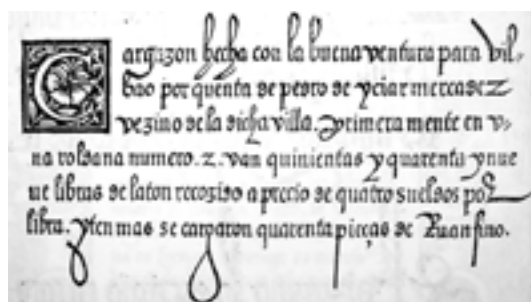 Cargazon hecha con la buena ventura para Vil-
bao por quenta de pedro de yciar mercader
vezino de la dicha villa. y primera mente en v-
na roldana numero .2. van quinientas y quarenta y nue
ue libras de laton recozido a precio de quatro sueldos por
libra. yten mas se cargaron quarenta pieças de Ruan fino.